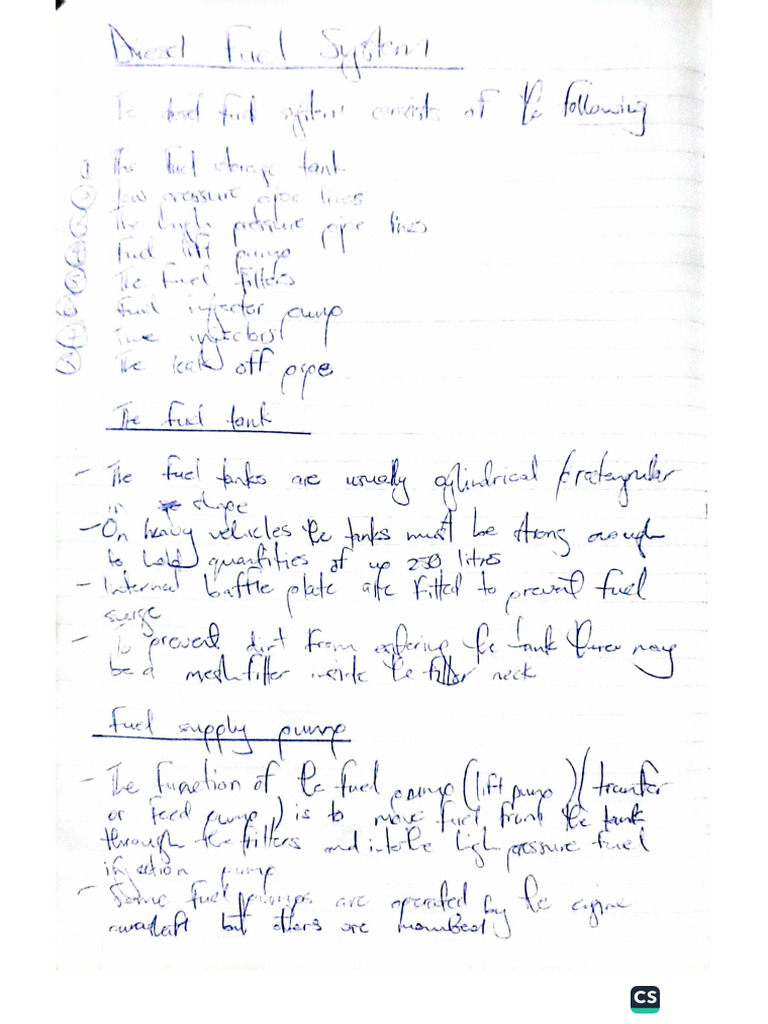 Diesel Fuel System
The diesel fuel system consists of the following
1 The fuel storage tank
2 Low pressure pipe lines
3 The high pressure pipe lines
4 Fuel lift pump
5 The fuel filters
6 Fuel injector pump
7 injectors
8 The leak off pipe
The fuel tank
- The fuel tanks are usually cylindrical / rectangular
in shape
- On heavy vehicles the tanks must be strong enough
to hold quantities of up 250 litres
- Internal baffle plate are fitted to prevent fuel
surge
- To prevent dirt from entering the tank there may
be a mesh filter inside the filler neck
Fuel supply pump
- The function of the fuel pump (lift pump)/(transfer
or feed pump) is to move fuel from the tank
through the filters and into the high pressure fuel
injection pump
- Some fuel pumps are operated by the engine
but others are
CS